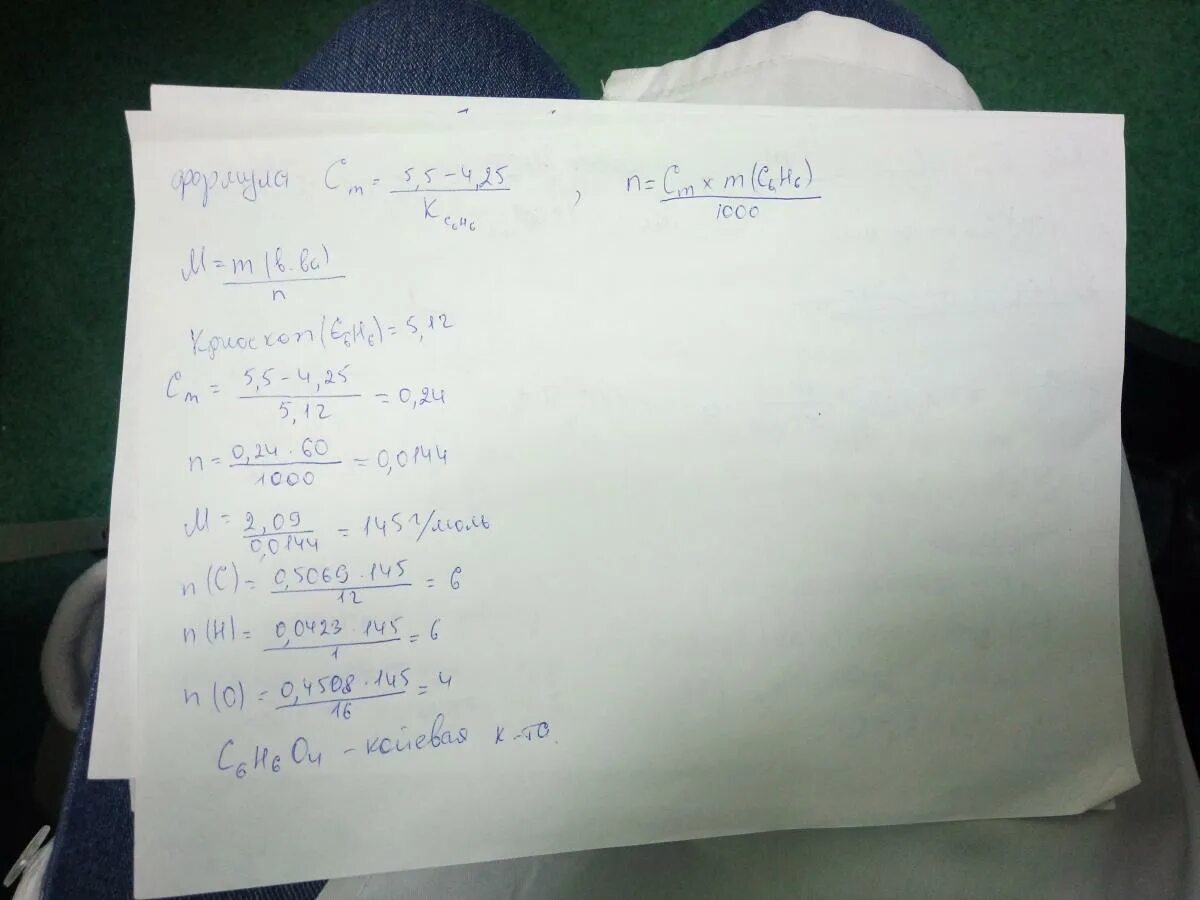 формула Cm = 5,5-4,25 / K C6H6 , n = Cm × m(C6H6) / 1000
M = m(в-ва) / n
Криоскоп(C6H6) = 5,12
Cm = 5,5-4,25 / 5,12 = 0,24
n = 0,24 · 60 / 1000 = 0,0144
M = 2,09 / 0,0144 = 145 г/моль
n(C) = 0,5069 · 145 / 12 = 6
n(H) = 0,0423 · 145 / 1 = 6
n(O) = 0,4508 · 145 / 16 = 4
C6H6O4 - койевая к-та.